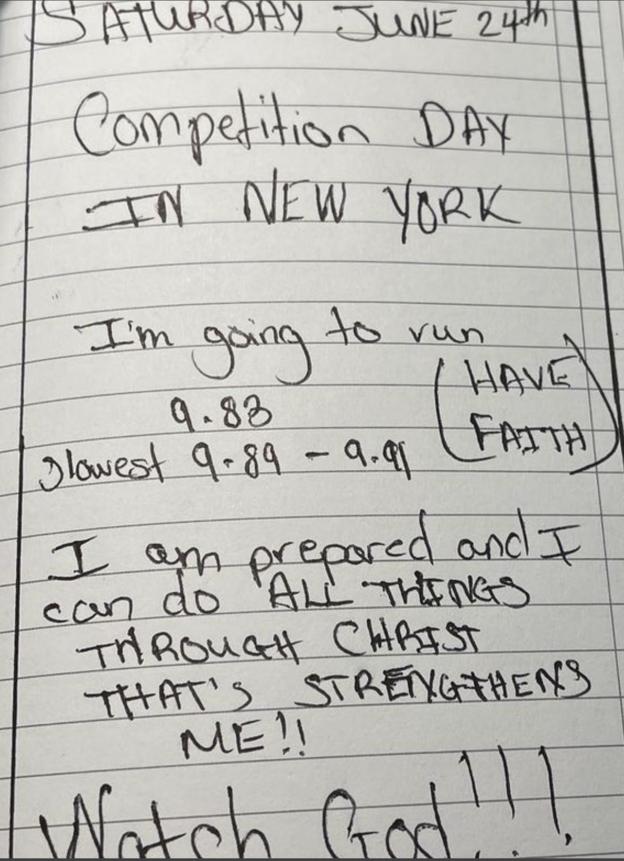 SATURDAY JUNE 24th
Competition DAY
IN NEW YORK
I'm going to run
(HAVE
9.83
FAITH)
slowest 9.89 - 9.91
I am prepared and I
can do ALL THINGS
THROUGH CHRIST
THAT'S STRENGTHENS
ME!!
Watch God!!!